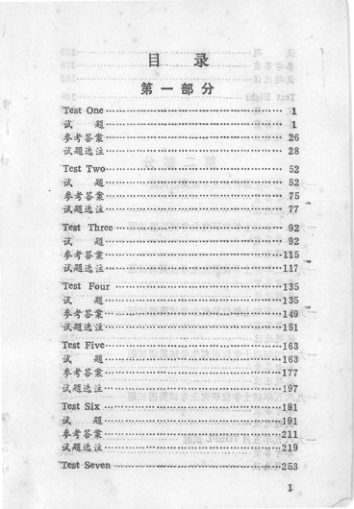 目 录
第一部分
Test One 1
试 题 1
参考答案 26
试题选注 28
Test Two 52
试 题 52
参考答案 75
试题选注 77
Test Three 92
试 题 92
参考答案 115
试题选注 117
Test Four 135
试 题 135
参考答案 149
试题选注 151
Test Five 163
试 题 163
参考答案 177
试题选注 197
Test Six 191
试 题 191
参考答案 211
试题选注 219
Test Seven 253
1